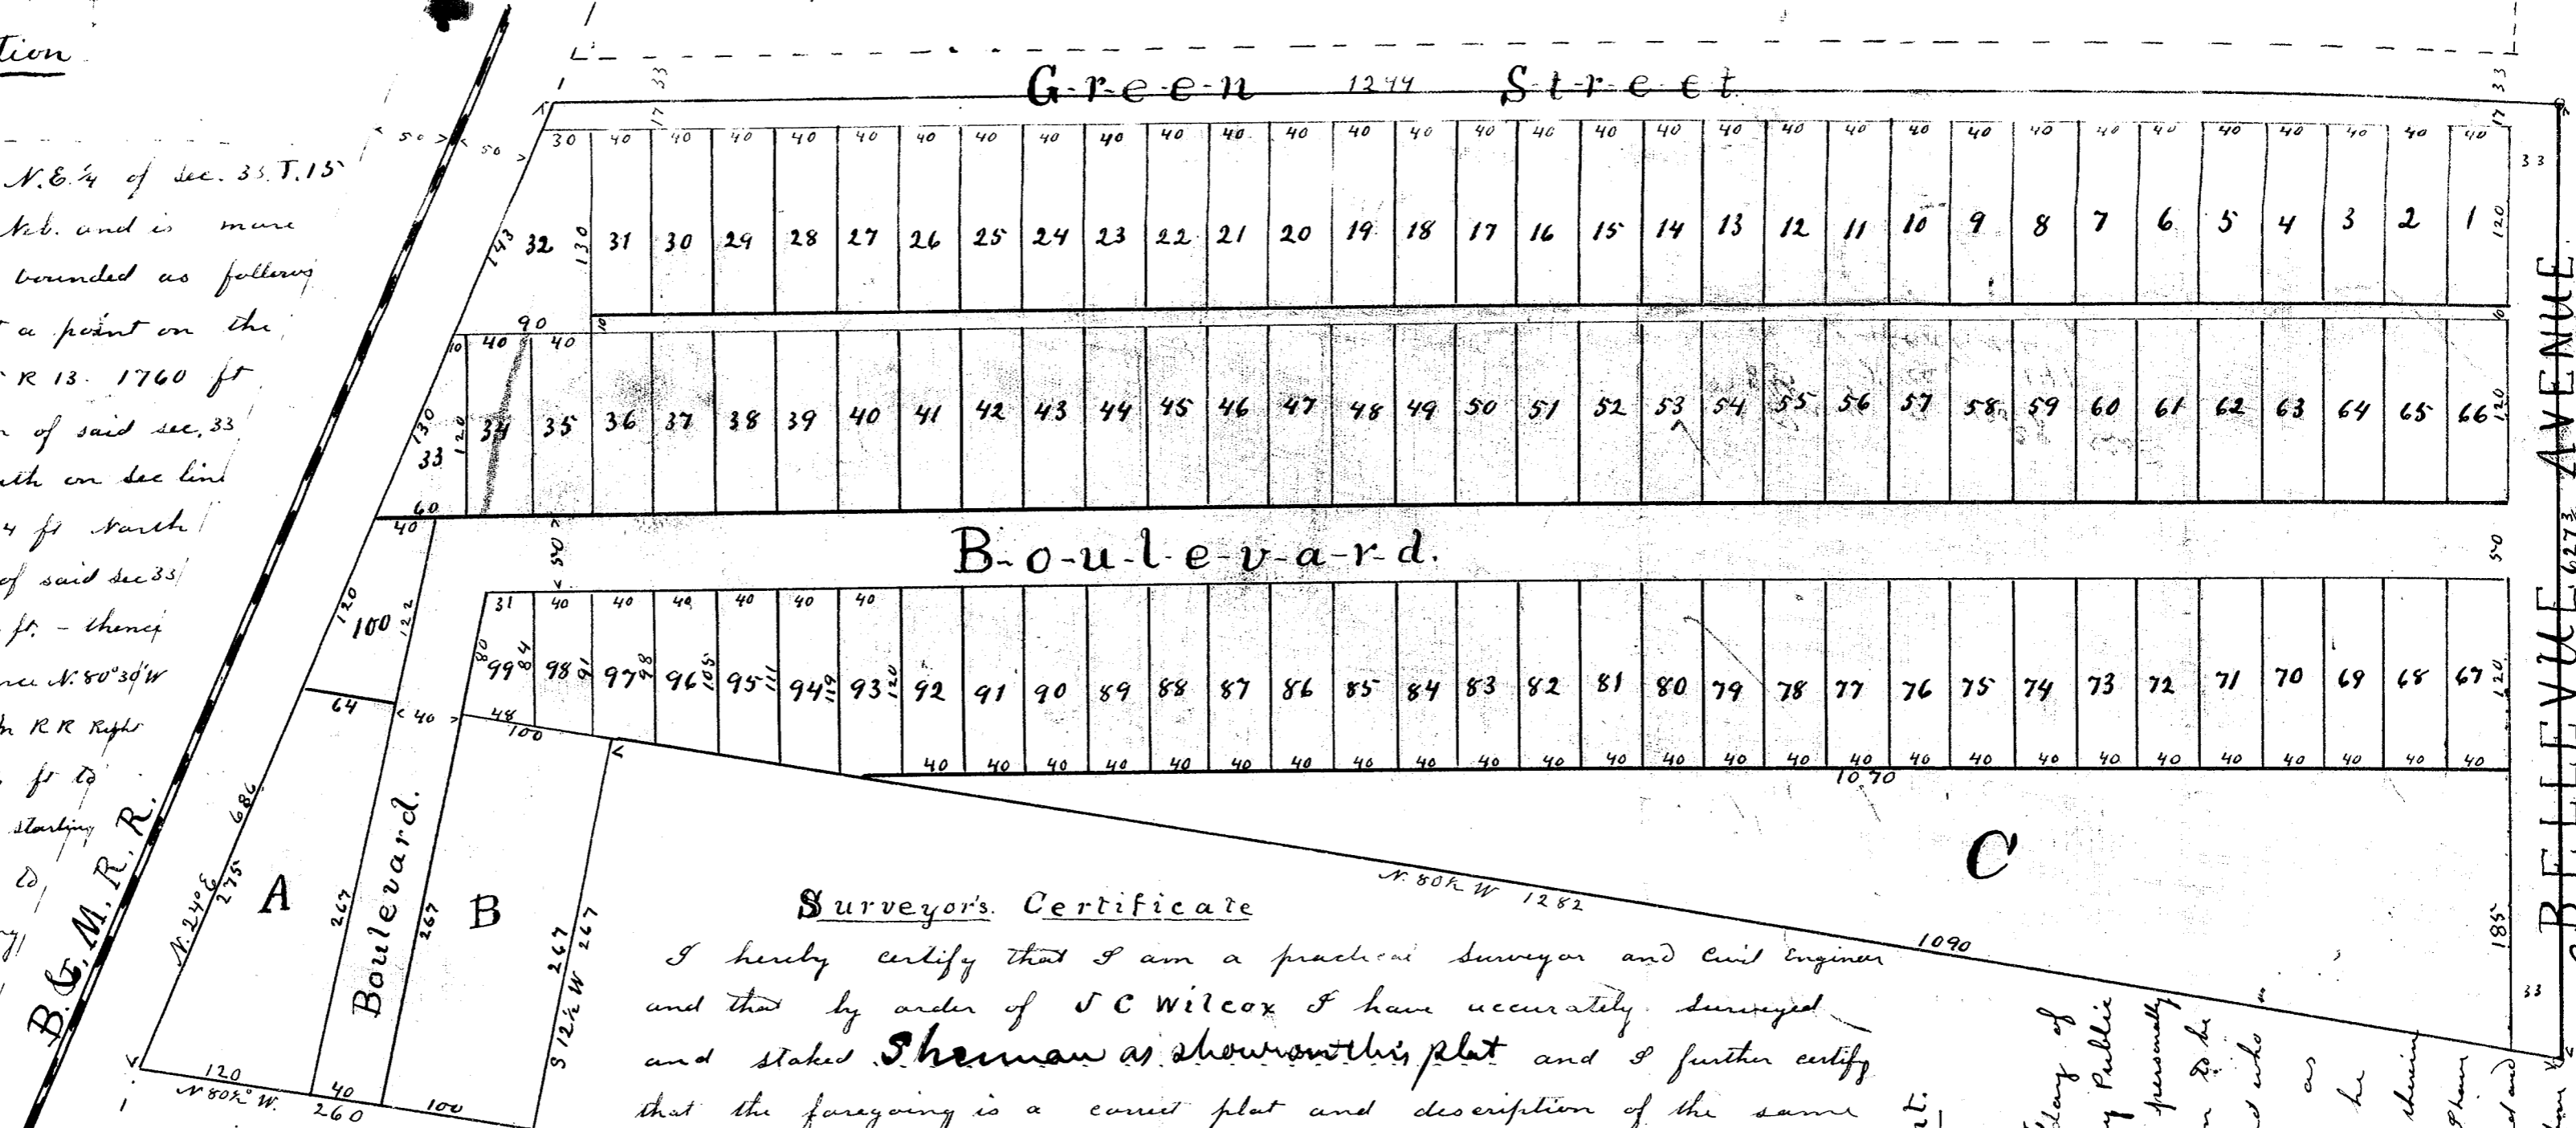 tion
N.E. 1/4 of Sec. 33. T. 15
Neb. and is more
bounded as follows
a point on the
R 13. 1760 ft
of said sec. 33
on Sec line
4 ft North
of said Sec 33
ft. - thence
N. 80° 30' W
R R Right
ft to
starting
B. & M. R. R.
50 50
33
17
Green 1244 Street
33
17
30 40 40 40 40 40 40 40 40 40 40 40 40 40 40 40 40 40 40 40 40 40 40 40 40 40 40 40 40 40 40 40
33
143 32 130 31 30 29 28 27 26 25 24 23 22 21 20 19 18 17 16 15 14 13 12 11 10 9 8 7 6 5 4 3 2 1 120
90 10 10
10 40 40
130 33 120 34 35 36 37 38 39 40 41 42 43 44 45 46 47 48 49 50 51 52 53 54 55 56 57 58 59 60 61 62 63 64 65 66 120
60
40
50 Boulevard. 50
BELLEVUE AVENUE
627 3
31 40 40 40 40 40 40
120 100 122
80 99 84 98 91 97 98 96 105 95 111 94 119 93 120 92 91 90 89 88 87 86 85 84 83 82 81 80 79 78 77 76 75 74 73 72 71 70 69 68 67 120
64 40 48
100
40 40 40 40 40 40 40 40 40 40 40 40 40 40 40 40 40 40 40 40 40 40 40 40 40 40
1070
686
N. 24° E
275
A
267
Boulevard.
267
B
267
S 12 1/2 W 267
C
N. 80 1/2 W 1282
1090
185
33
120
N 80 1/2° W.
40
260
100
Surveyor's Certificate
I hereby certify that I am a practical Surveyor and Civil Engineer
and that by order of J C Wilcox I have accurately surveyed
and staked Sherman as shown on this plat and I further certify
that the foregoing is a correct plat and description of the same
day of
y Public
personally
to be
who
as
he
therein